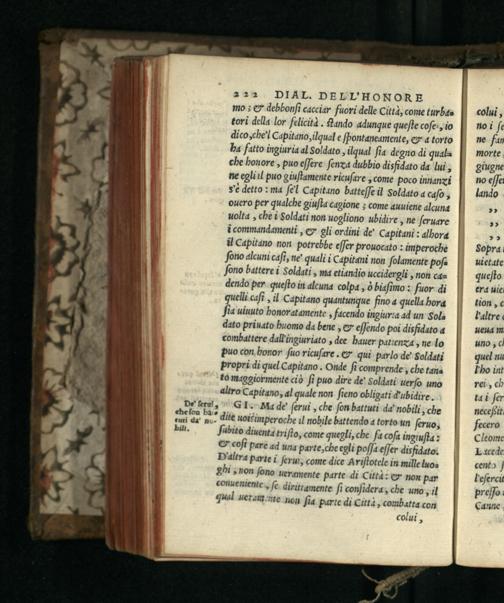 222 DIAL. DELL'HONORE
mo; & debbonsi cacciar fuori delle Città, come turba-
tori della lor felicità. stando adunque queste cose, io
dico, che'l Capitano, ilqual e spontaneamente, & a torto
ha fatto ingiuria al Soldato, ilqual sia degno di qual-
che honore, puo essere senza dubbio disfidato da lui,
ne egli il puo giustamente ricusare, come poco innanzi
s'è detto: ma se'l Capitano battesse il Soldato a caso,
ouero per qualche giusta cagione; come auuiene alcuna
uolta, che i Soldati non uogliono ubidire, ne seruare
i commandamenti, & gli ordini de' Capitani: alhora
il Capitano non potrebbe esser prouocato: imperoche
sono alcuni casi, ne' quali i Capitani non solamente pos-
sono battere i Soldati, ma etiandio uccidergli, non ca-
dendo per questo in alcuna colpa, ò biasimo: fuor di
quelli casi, il Capitano quantunque fino a quella hora
sia uiuuto honoratamente, facendo ingiuria ad un Sol-
dato priuato huomo da bene, & essendo poi disfidato a
combattere dall'ingiuriato, dee hauer patienza, ne lo
puo con honor suo ricusare. & qui parlo de' Soldati
propri di quel Capitano. Onde si comprende, che tan-
to maggiormente ciò si puo dire de' Soldati uerso uno
altro Capitano, al quale non sieno obligati d'ubidire.
GI. Ma de' serui, che son battuti da' nobili, che
dite uoi? imperoche il nobile battendo a torto un seruo,
subito diuenta tristo, come quegli, che fa cosa ingiusta:
& cosi pare ad una parte, che egli possa esser disfidato.
D'altra parte i serui, come dice Aristotele in mille luo-
ghi, non sono ueramente parte di Città: & non par
conueniente, se dirittamente si considera, che uno, il
qual ueramente non sia parte di Città, combatta con
colui,
De' serui,
che son ba-
tuti da' no-
bili.
colui,
no i se
ne fan
morte
giugne
no esse
lando
,,
,,
,,
Sopra
uietate
questo
era uie
tion, c
l'altre
ueua m
uno, ch
quel nu
l'ho int
rei, ch
ta i ser
necessit
fecero
Cleome
cento
l'eserci
presso
Canne